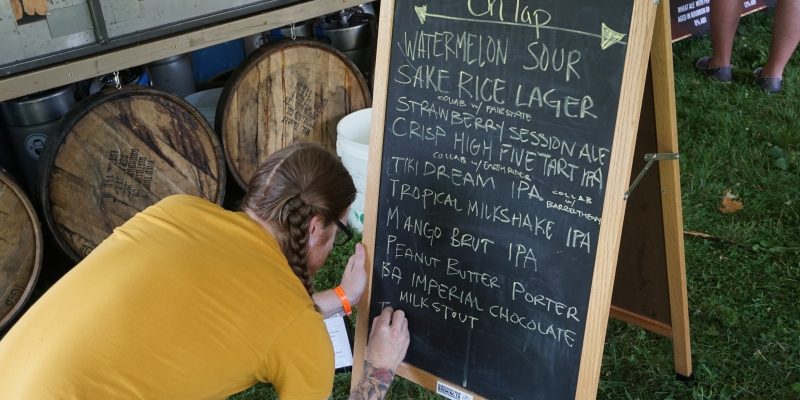 On Tap
WATERMELON SOUR
SAKE RICE LAGER
COLAB W/ FAIR STATE
STRAWBERRY SESSION ALE
CRISP HIGH FIVE TART IPA
COLLAB W/ EARTH RIDER
TIKI DREAM IPA COLLAB
W/
BARREL THEORY
TROPICAL MILKSHAKE IPA
MANGO BRUT IPA
PEANUT BUTTER PORTER
BA IMPERIAL CHOCOLATE
MILK STOUT